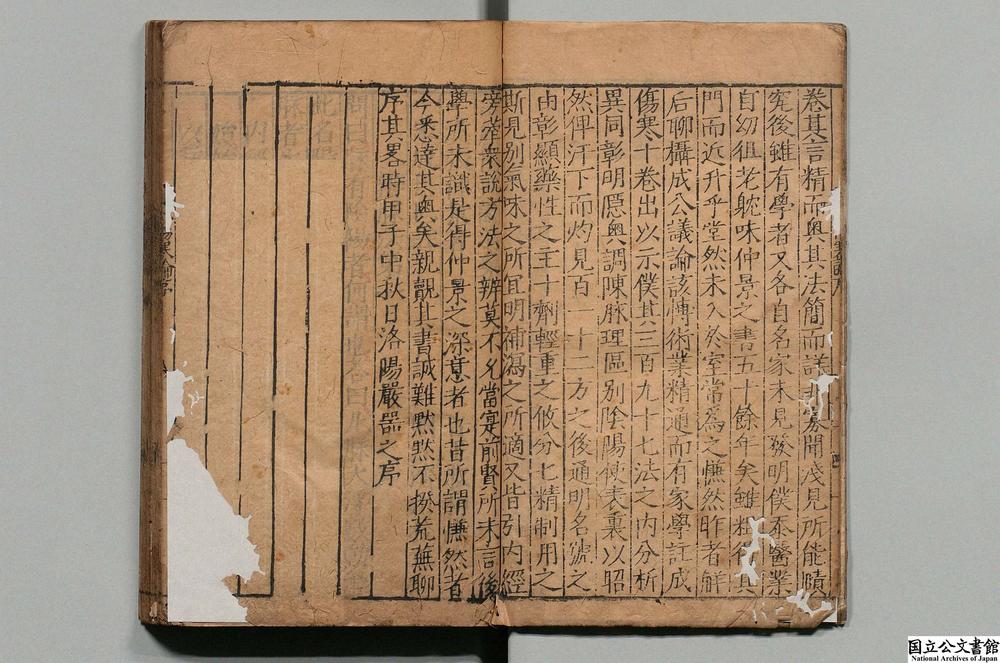 卷其言精而奧其法簡而詳非寡聞淺見所能賾
究後雖有學者又各自名家未見發明僕忝醫業
自幼徂老躭味仲景之書五十餘年矣雖粗得其
門而近升乎堂然未入於室常爲之慊然昨者觧
后聊攝成公議論該愽術業精通而有家學註成
傷寒十卷出以示僕其三百九十七法之內分析
異同彰明隱奧調陳脉理區別陰陽使表裏以昭
然俾汗下而灼見百一十二方之後通明名號之
由彰顯藥性之主十劑輕重之攸分七精制用之
斯見別氣味之所宜明補瀉之所適又皆引內經
旁牽衆說方法之辨莫不允當寔前賢所未言後
學所未識是得仲景之深意者也昔所謂慊然者
今悉達其奧矣親覩其書誠難黙黙不揆荒蕪聊
序其畧時甲子中秋日洛陽嚴器之序
国立公文書館
National Archives of Japan